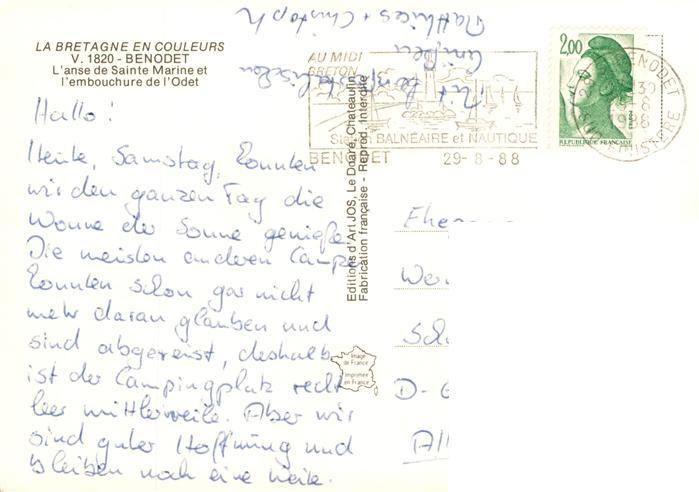 LA BRETAGNE EN COULEURS
V. 1820 - BENODET
L'anse de Sainte Marine et
l'embouchure de l'Odet
Hallo!
Heute, Samstag, konnten
wir den ganzen Tag die
Wonne der Sonne genießen
Die meisten anderen Camper
konnten schon gar nicht
mehr daran glauben und
sind abgereist, deshalb
ist der Campingplatz recht
leer mittlerweile. Aber wir
sind guter Hoffnung und
bleiben noch eine Weile.
Matthias + Christoph
AU MIDI
BRETON
BALNÉAIRE et NAUTIQUE
BENODET 29-8-88
2,00
REPUBLIQUE FRANÇAISE
BENODET
FINISTERE
Editions d'Art JOS, Le Doaré, Chateaulin
Fabrication française - Reprod. Interdite
Image
de France
Imprimée
en France
D-